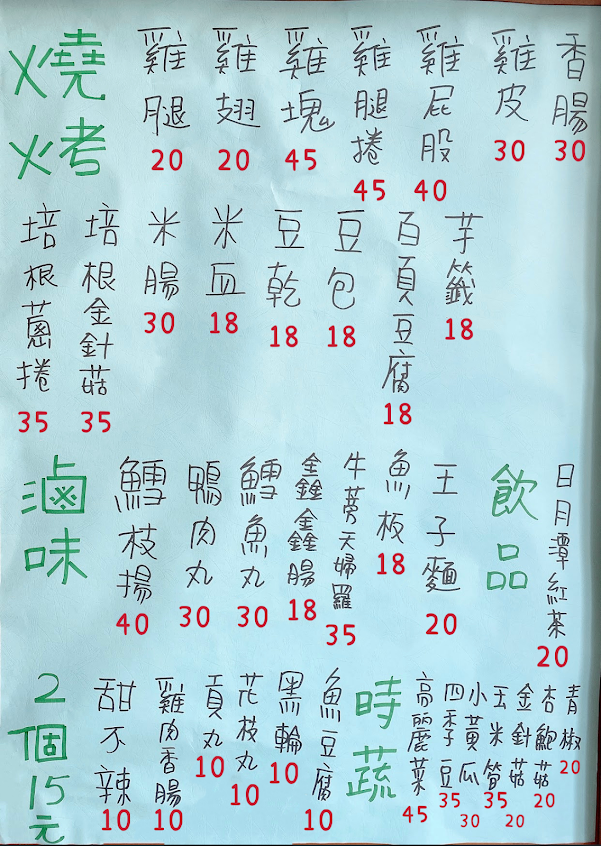 燒烤
雞腿
20
雞翅
20
雞塊
45
雞腿捲
45
雞屁股
40
雞皮
30
香腸
30
培根蔥捲
35
培根金針菇
35
米腸
30
米血
18
豆乾
18
豆包
18
百頁豆腐
18
芋籤
18
滷味
鱈枝揚
40
鴨肉丸
30
鱈魚丸
30
鑫鑫腸
18
牛蒡天婦羅
35
魚板
18
王子麵
20
飲品
日月潭紅茶
20
2個15元
甜不辣
10
雞肉香腸
10
貢丸
10
花枝丸
10
黑輪
10
魚豆腐
10
時蔬
高麗菜
45
四季豆
35
小黃瓜
30
玉米筍
35
金針菇
20
杏鮑菇
20
青椒
20